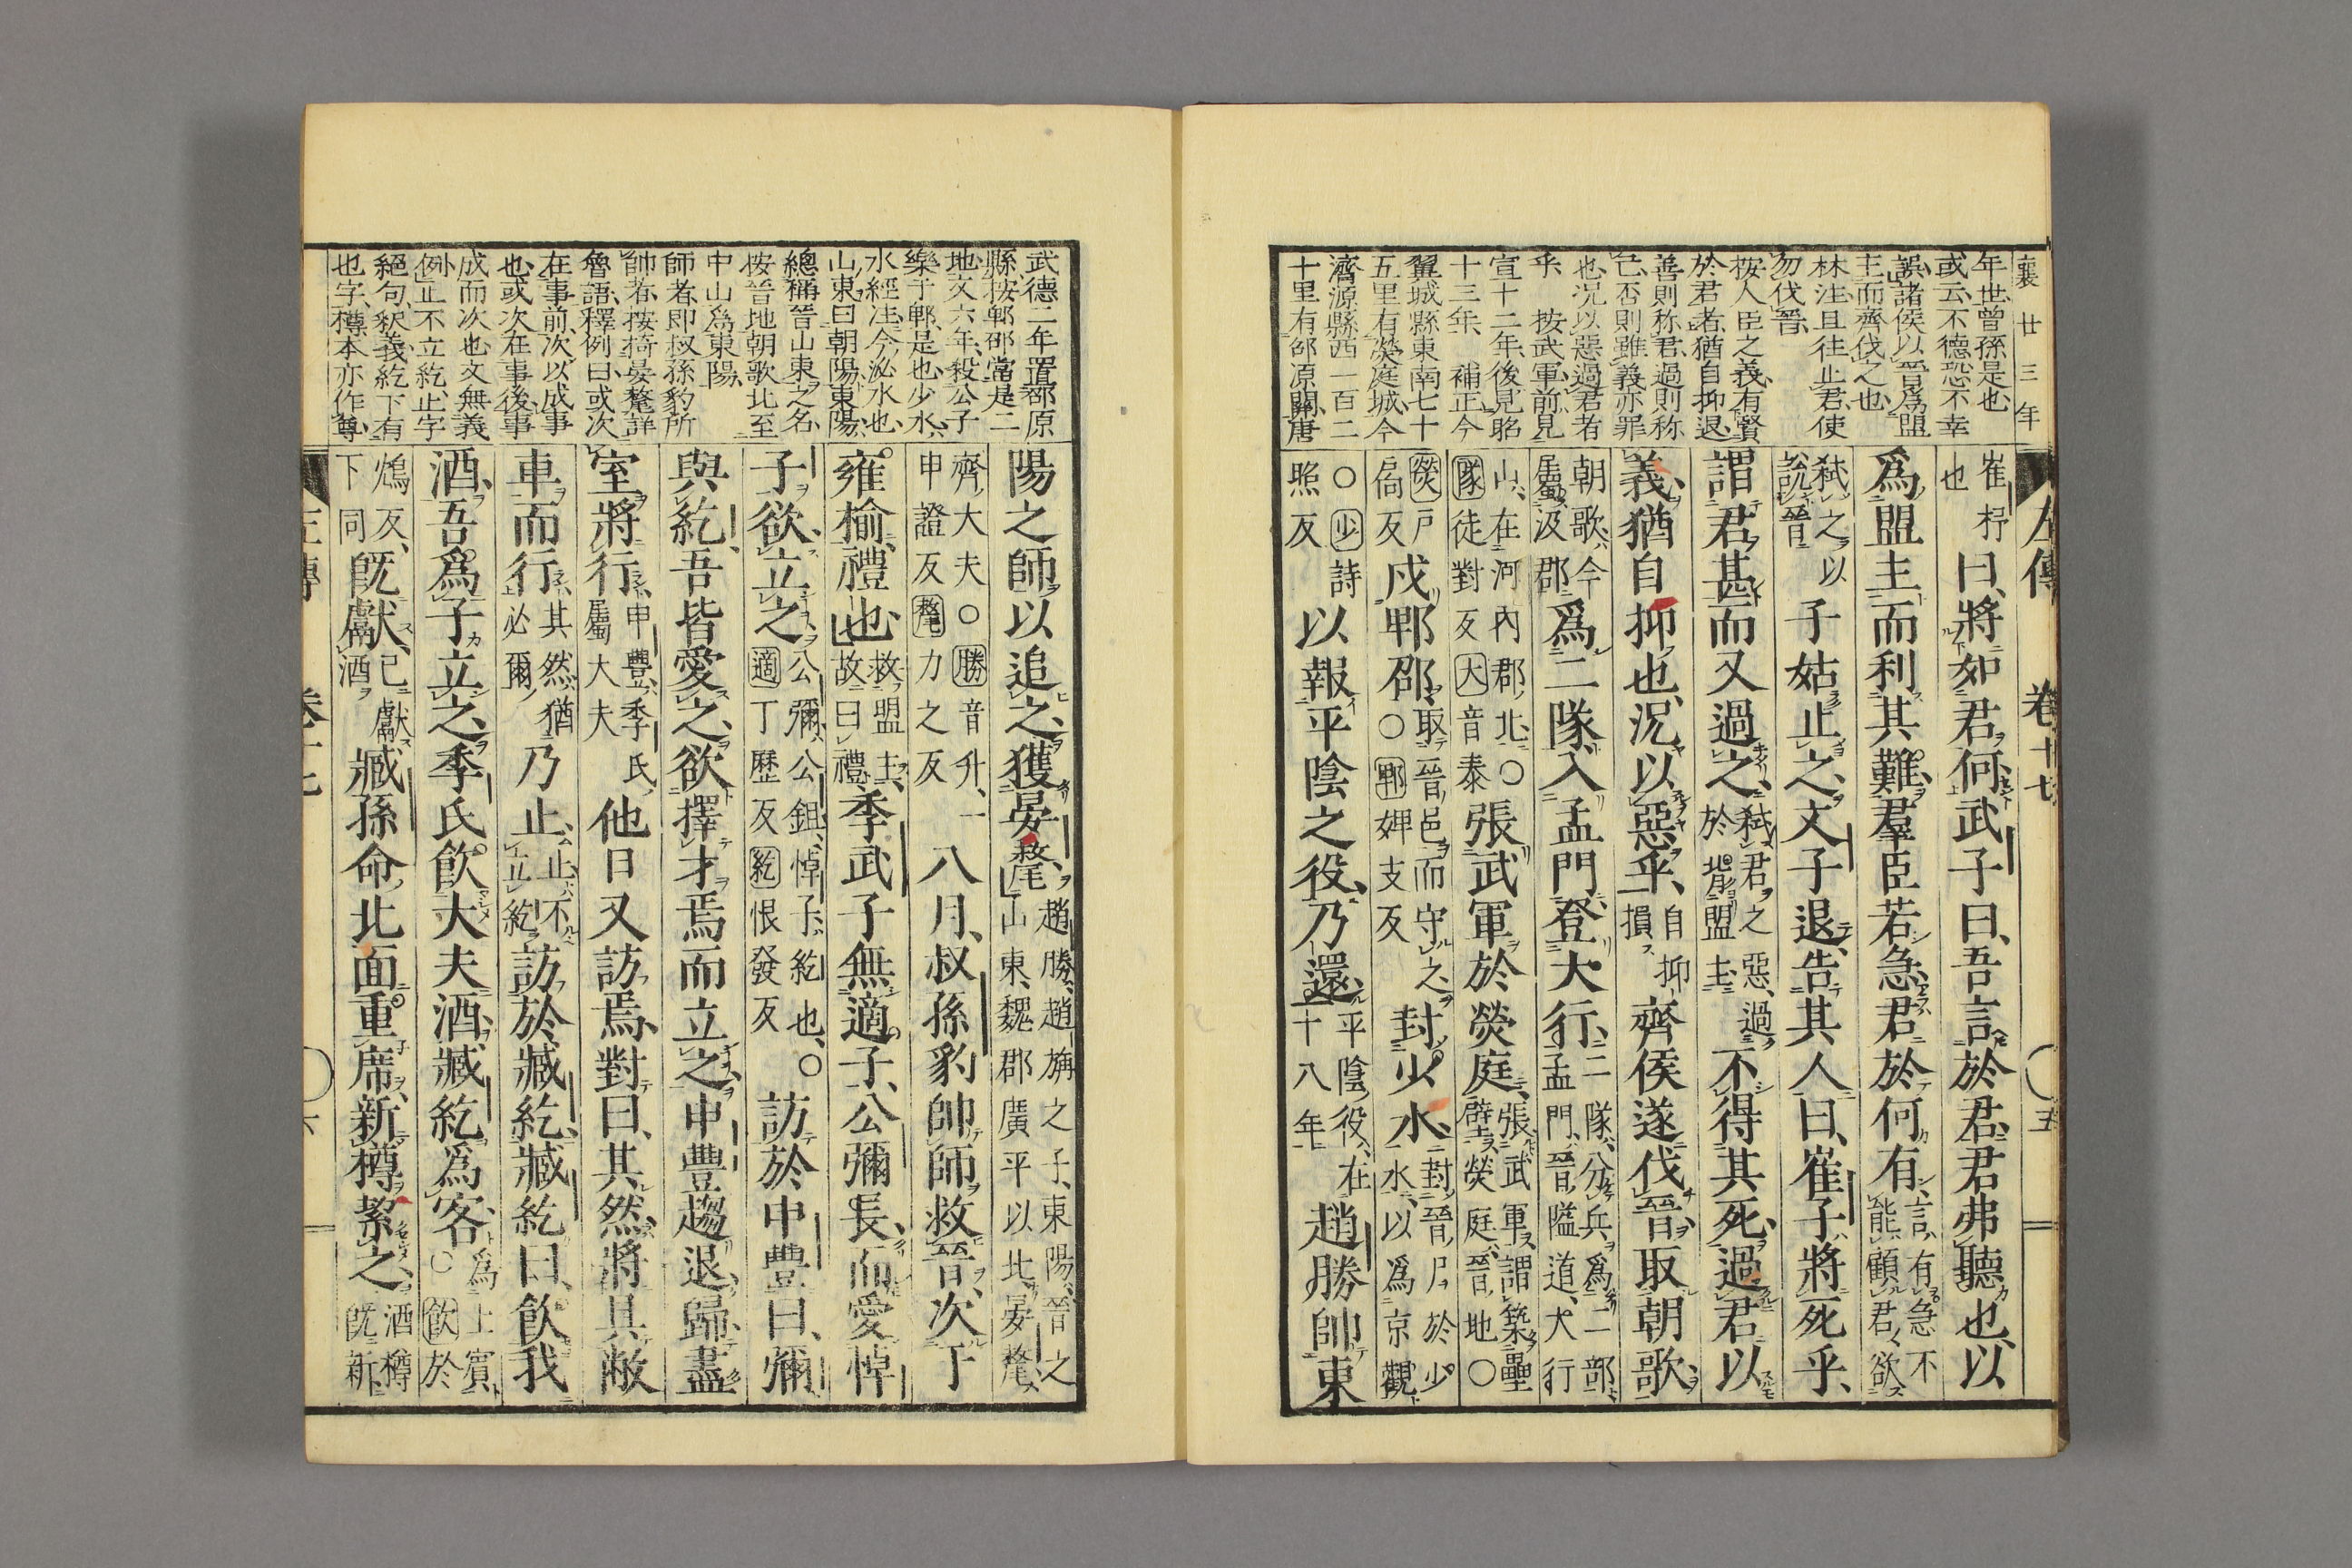 襄廿三年
年世曾孫是也
或云不德恐不幸
誤諸侯以晉爲盟
主而齊伐之也
林注且往止君使
勿伐晉
按人臣之義有賢
於君者猶自抑退
善則称君過則称
己否則雖義亦罪
也况以惡過君者
乎 按武軍前見
宣十二年後見昭
十三年 補正今
翼城縣東南七十
五里有熒庭城今
濟源縣西一百二
十里有邵原關唐
左傳 卷十七 五
崔杼也曰、將如君何、武子曰、吾言於君、君弗聽也、以
爲盟主、而利其難、羣臣若急、君於何有、言有急不能顧君、欲
弑之以說晉子姑止之、文子退、告其人曰、崔子將死乎、
謂君甚而又過之、弑君之惡、過於背盟主不得其死、過君以
義、猶自抑也、況以惡乎、自抑損齊侯遂伐晉、取朝歌、
朝歌、今屬汲郡爲二隊、入孟門、登大行、二隊、分兵爲二部、孟門、晉隘道、大行
山、在河內郡北、○隊徒對反大音泰張武軍於熒庭、張武軍、謂築壘壁、熒庭、晉地○
熒戸扃反戍郫邵、取晉邑而守之、○郫婢支反封少水、封晉尸於少水、以爲京觀
○少詩照反以報平陰之役、乃還、平陰役、在十八年趙勝帥東
武德二年置邵原
縣按郫邵當是二
地文六年殺公子
樂于郫是也少水
水經注今泌水也
山東曰朝陽東陽
總稱晉山東之名
按晉地朝歌北至
中山爲東陽
師者即叔孫豹所
帥者按掎晏氂詳
魯語釋例曰或次
在事前次以成事
也或次在事後事
成而次也文無義
例止不立紇止字
絕句釈義紇下有
也字樽本亦作尊
陽之師以追之、獲晏氂、趙勝、趙旃之子、東陽、晉之山東、魏郡廣平以北、晏氂、
齊大夫○勝音升、一申證反氂力之反八月、叔孫豹帥師救晉、次于
雍榆、禮也、救盟主、故曰禮季武子無適子、公彌長、而愛悼
子、欲立之、公彌、公鉏、悼子、紇也、○適丁歷反紇恨發反訪於申豐曰、彌
與紇、吾皆愛之、欲擇才焉而立之、申豐趨退、歸盡
室將行、申豐、季氏屬大夫他日又訪焉、對曰、其然、將具敝
車而行、其然、猶必爾乃止、止、不立紇訪於臧紇、臧紇曰、飲我
酒、吾爲子立之、季氏飲大夫酒、臧紇爲客、爲上賓、○飲於
鴆反、下同既獻、已獻酒臧孫命北面重席、新樽絜之、酒樽既新
左傳 卷十七 六